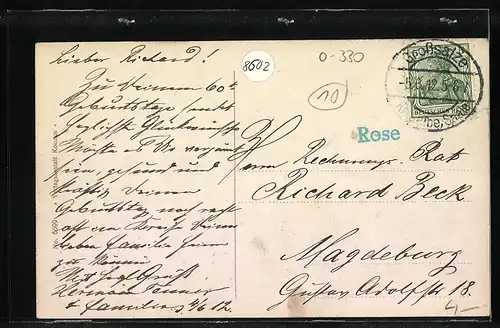 Lieber Richard!
Zu Deinem 60t.
Geburtstage sendet
herzlichste Glückwünsche
Möchte es Dir vergönnt
sein, gesund und
kräftig Deinen
Geburtstag noch recht
oft im Kreise Deiner
lieben Familie feiern
zu können
Mit herzl. Gruß
Hermann
& Familie 4/6 12.
8602
0-330
10
Großsalze
DEUTSCHES REICH
Rose
Herrn Rechnungs-Rat
Richard Beck
Magdeburg
Gustav Adolfstr 18.
4,-